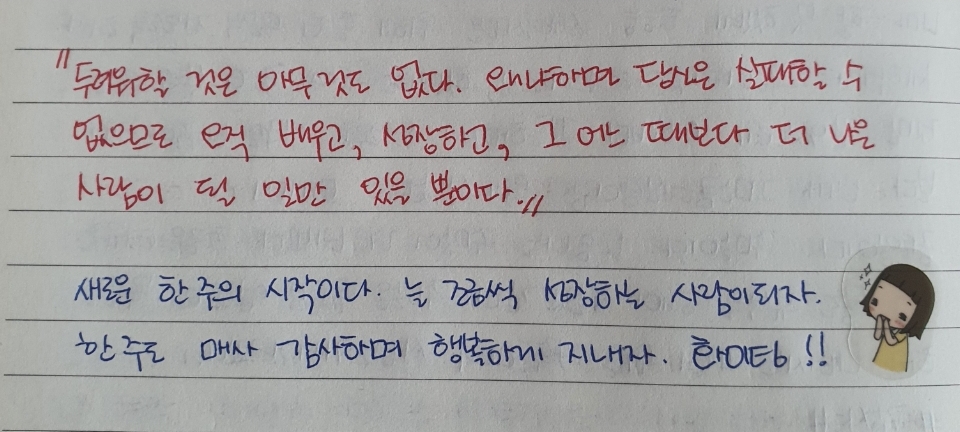 "두려워할 것은 아무것도 없다. 왜냐하면 당신은 실패할 수
없으므로 오직 배우고, 성장하고, 그 어느 때보다 더 나은
사람이 될 일만 있을 뿐이다."
새로운 한 주의 시작이다. 늘 조금씩 성장하는 사람이되자.
한 주도 매사 감사하며 행복하게 지내자. 화이팅!!